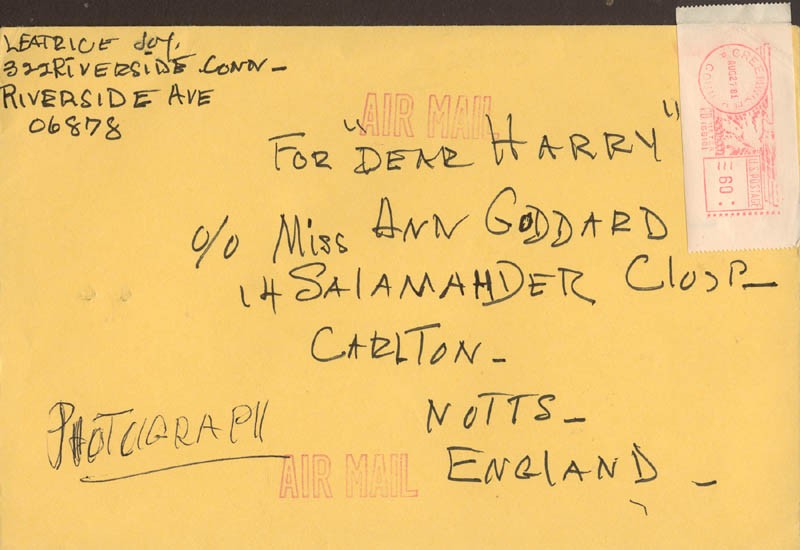 LEATRICE Joy.
322 RIVERSIDE CONN-
RIVERSIDE AVE
06878
AIR MAIL
FOR "DEAR HARRY"
c/o Miss ANN GODDARD
14 SALAMANDER Close
CARLTON-
NOTTS-
ENGLAND-
PHOTOGRAPH
AIR MAIL
GREENWICH CONN
AUG 27 '81
U.S. POSTAGE
60